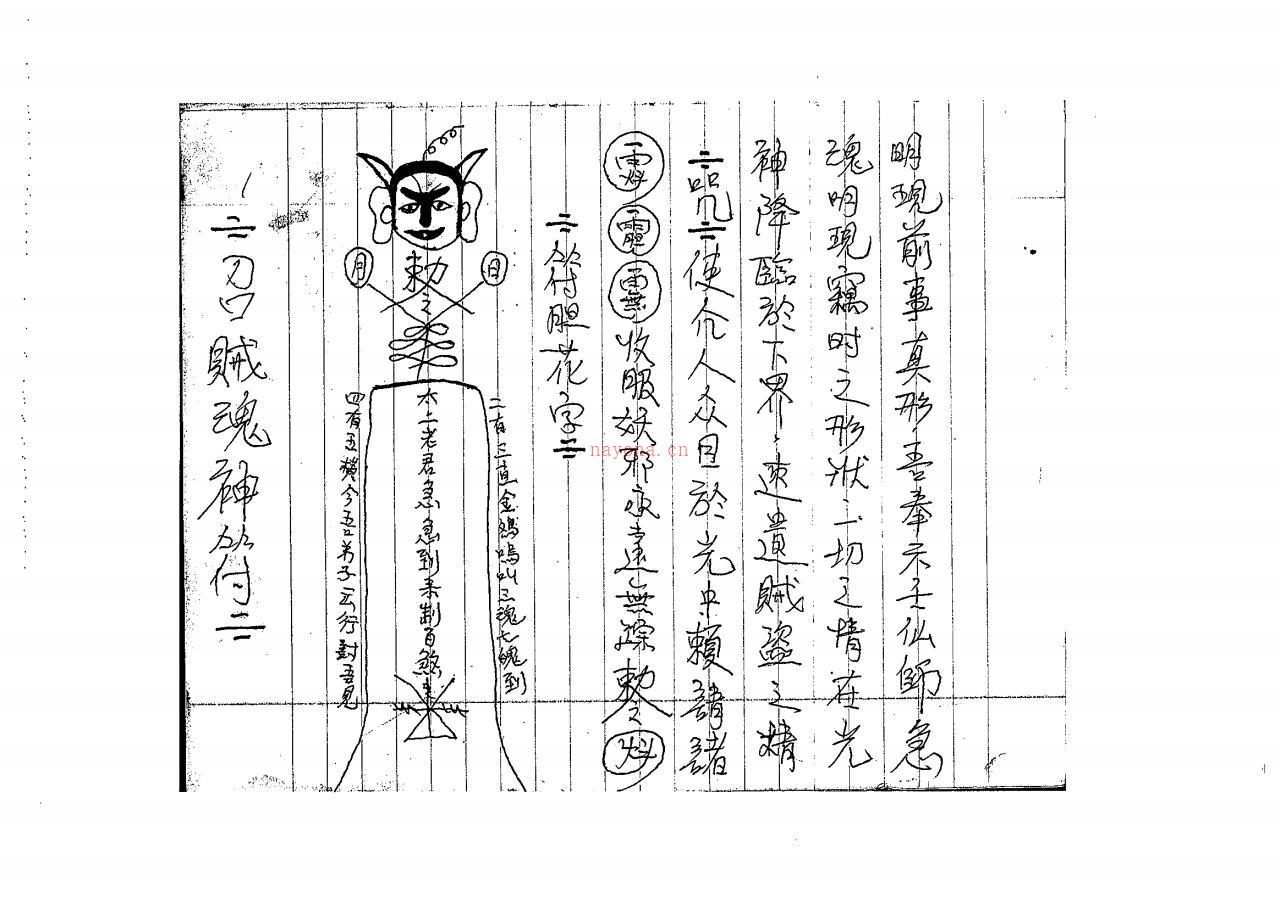 明現前事真形吾奉示壬仙師急
魂明現竊时之形狀一切之情在光
神降臨於下界速遣賊盜之精
咒使人众目於光中賴請諸
收服妖邪永遠無踪勅令
符胆花字
勅令
日
月
二有三直金鷄鳴叫三魂七魄到
六二老君急急到制百煞
四有五今吾弟子一云行對吾見
刀口賊魂神符
nayona.cn